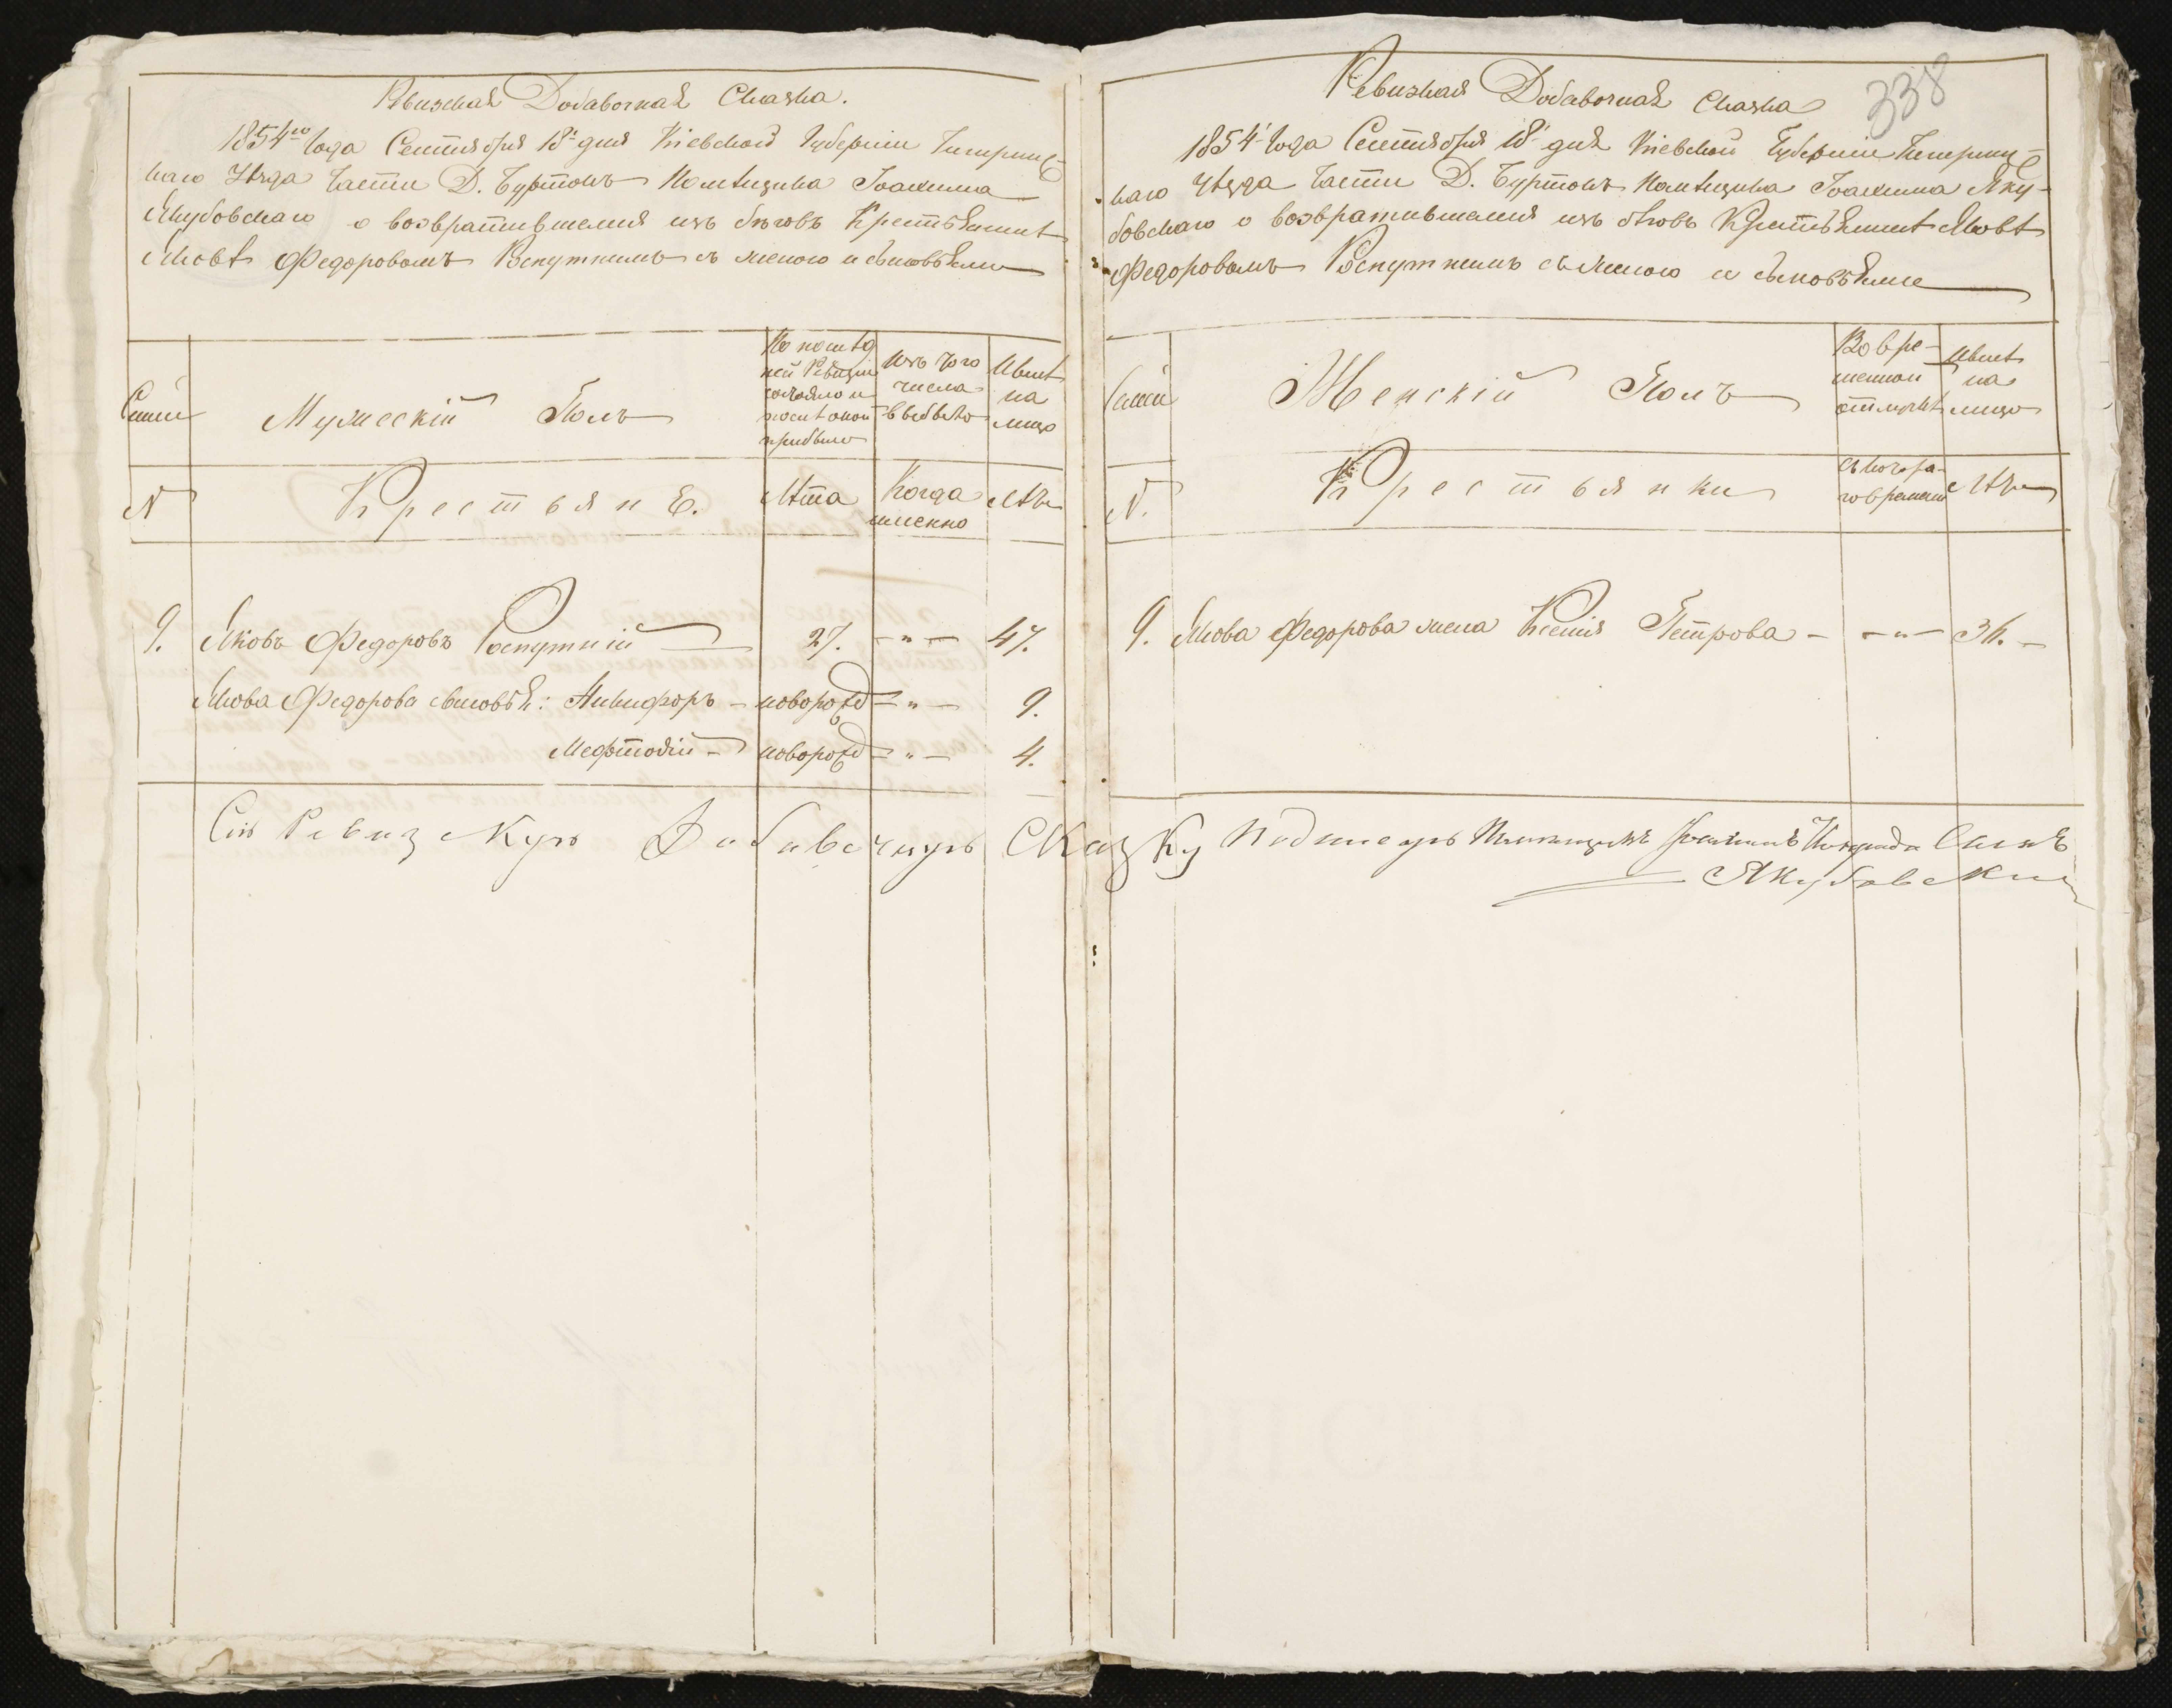 Ревизская Добавочная Сказка.
1854го Года Сентября 18 дня Кіевской Губерніи Чигиринс-
каго Уѣзда Части Д. Буртокъ Помѣщика Іоакима
Якубовскаго о возвратившемся изъ бѣговъ Крестьянинѣ
Яковѣ Федоровомъ Роспутнимъ съ женою и сыновьями
Семьи
Мужескій Полъ
По послѣд
ней Ревизіи
состояло и
послѣ оной
прибыло
Изъ того
числа
выбыло
Нынѣ
на
лицо
№
Крестьяне.
Лѣта
Когда
именно
Лѣта
9. Яковъ Федоровъ Роспутній 27. — " — 47.
Якова Федорова сыновья: Никифоръ – новорожд — " — 9.
Мефтодій – новорожд — " — 4.
338
Ревизская Добавочная Сказка
1854 Года Сентября 18 дня Кіевской Губерніи Чигиринс-
каго Уѣзда Части Д. Буртокъ Помѣщика Іоакима Яку-
бовскаго о возвратившемся изъ бѣговъ Крестьянинѣ Яковѣ
Федоровомъ Роспутнимъ съ женою и сыновьями
Семьи
Женскій Полъ
Во вре-
менной
отлучкѣ
Нынѣ
на
лицо
№.
Крестьянки
Съ котора-
го времени
Лѣта
9. Якова Федорова жена Ксенія Петрова – — " — 36. –
Сію Ревизскую Добавочную Сказку Подписалъ Помещикъ Сынъ
Якубовский